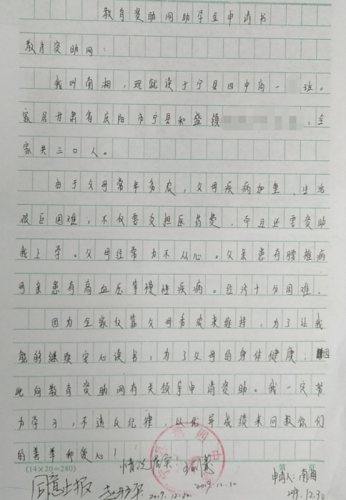 教育资助网助学生申请书
教育资助网:
我叫南湘,现就读于宁县四中高一 班。
家居甘肃省庆阳市宁县和盛镇 ,全
家共三口人。
由于父母常年多病,父母疾病加重,生活
极困难,不仅要负担医药费,而且还要资助
我上学。父母经常力不从心。父亲患有腰椎病
母亲患有高血压等慢性疾病。经济十分困难。
因为全家仅靠父母务农来维持,为了让我
能的继续安心读书,为了父母的身体健康,
此向教育资助网有关领导申请资助。我一定努
力学习,不违反纪律,以优异成绩来回报你们
的善事和爱心!
(14×20=280)
情况属实
2019.12.10
申请人:南湘
同意上报
2019.12.20